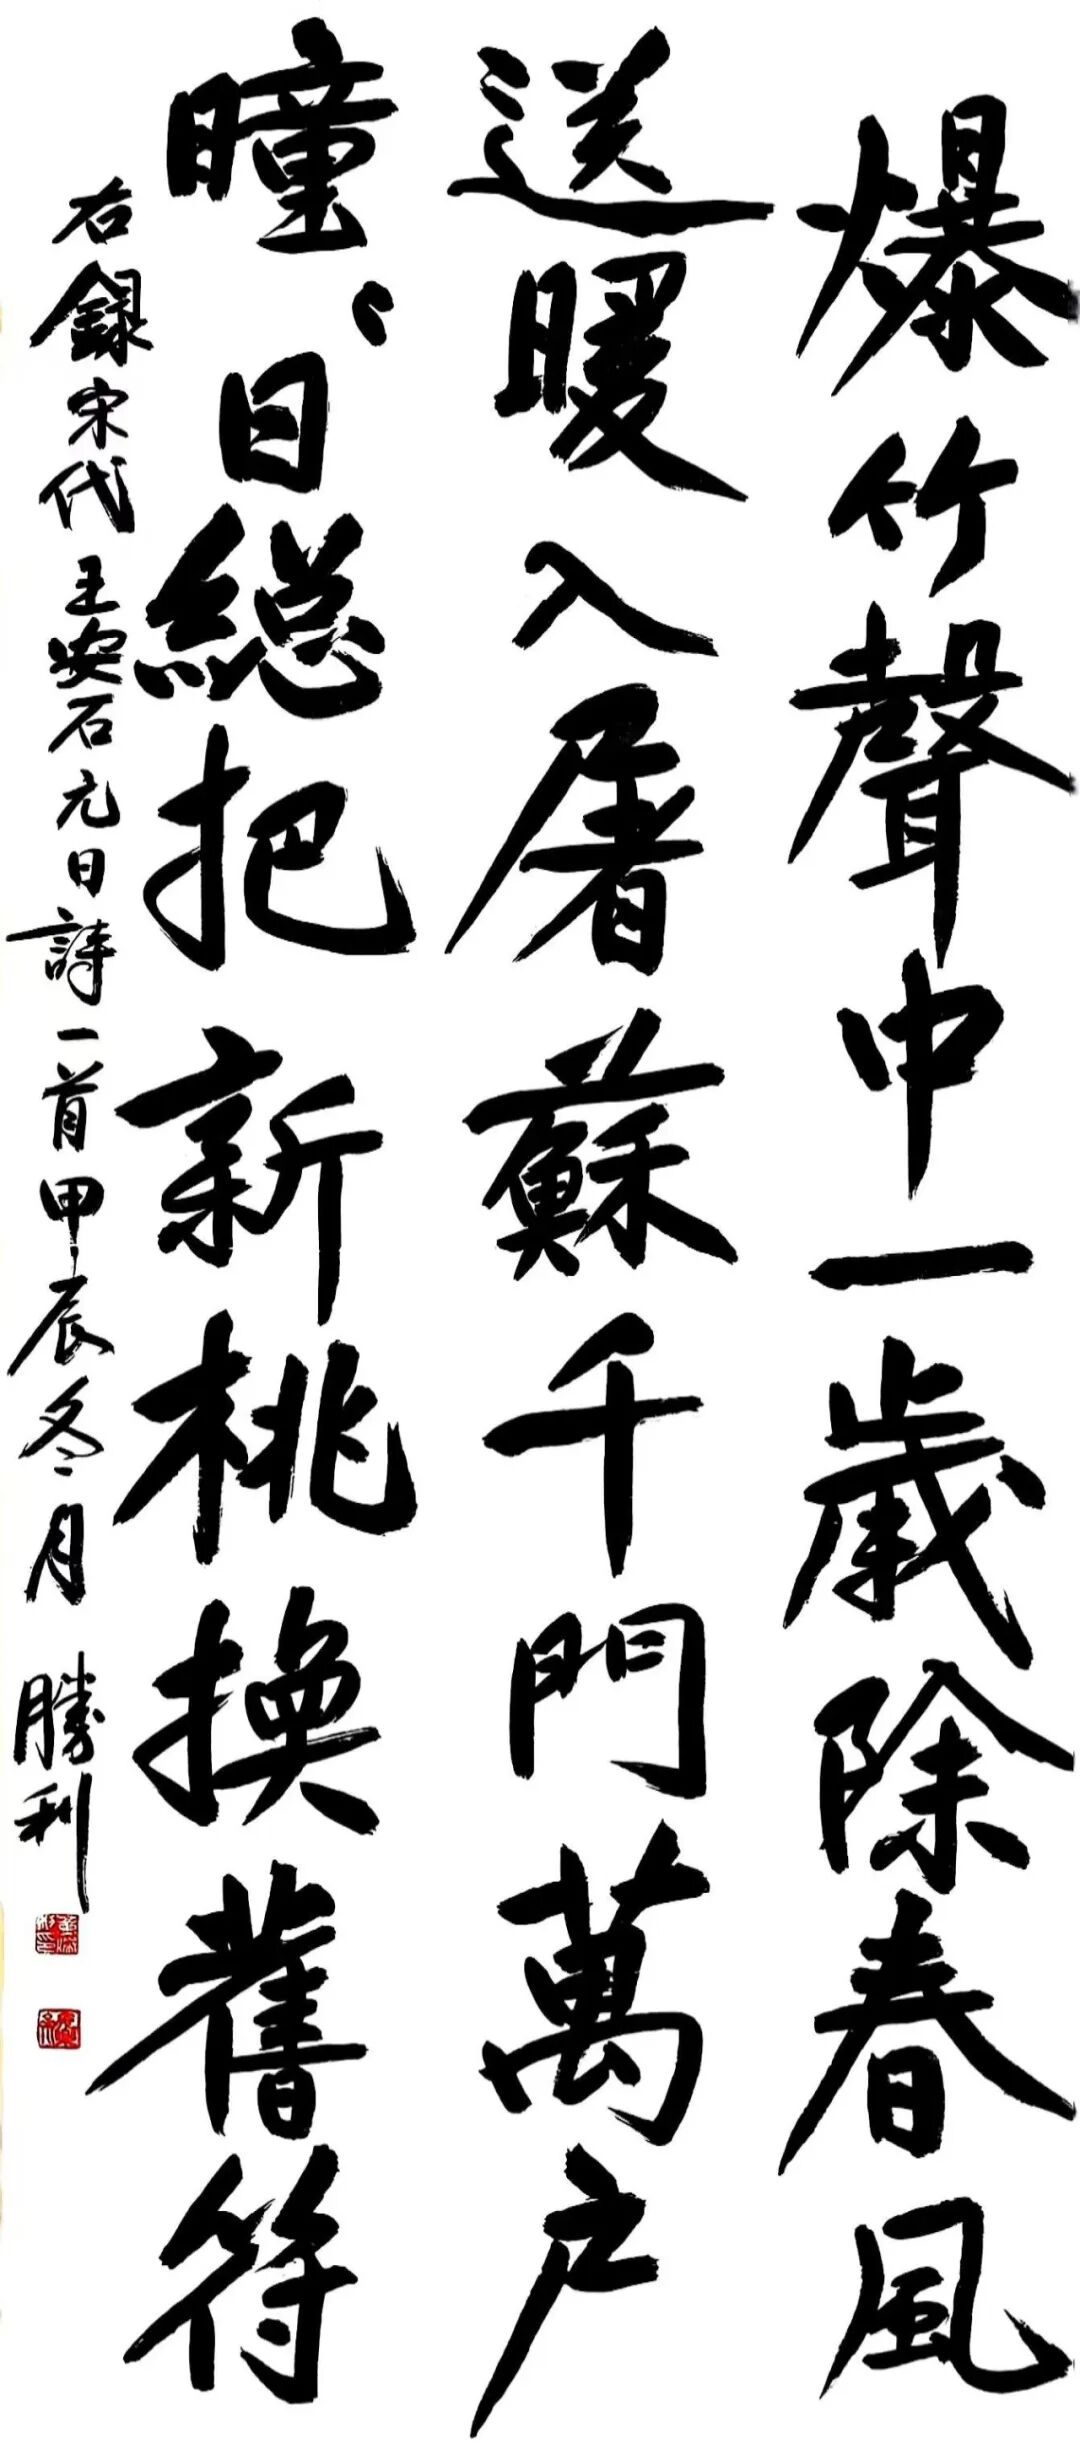 爆竹聲中一歲除春風
送暖入屠蘇千門萬户
曈〻日總把新桃換舊符
右錄宋代王安石元日詩一首甲辰冬月 勝利